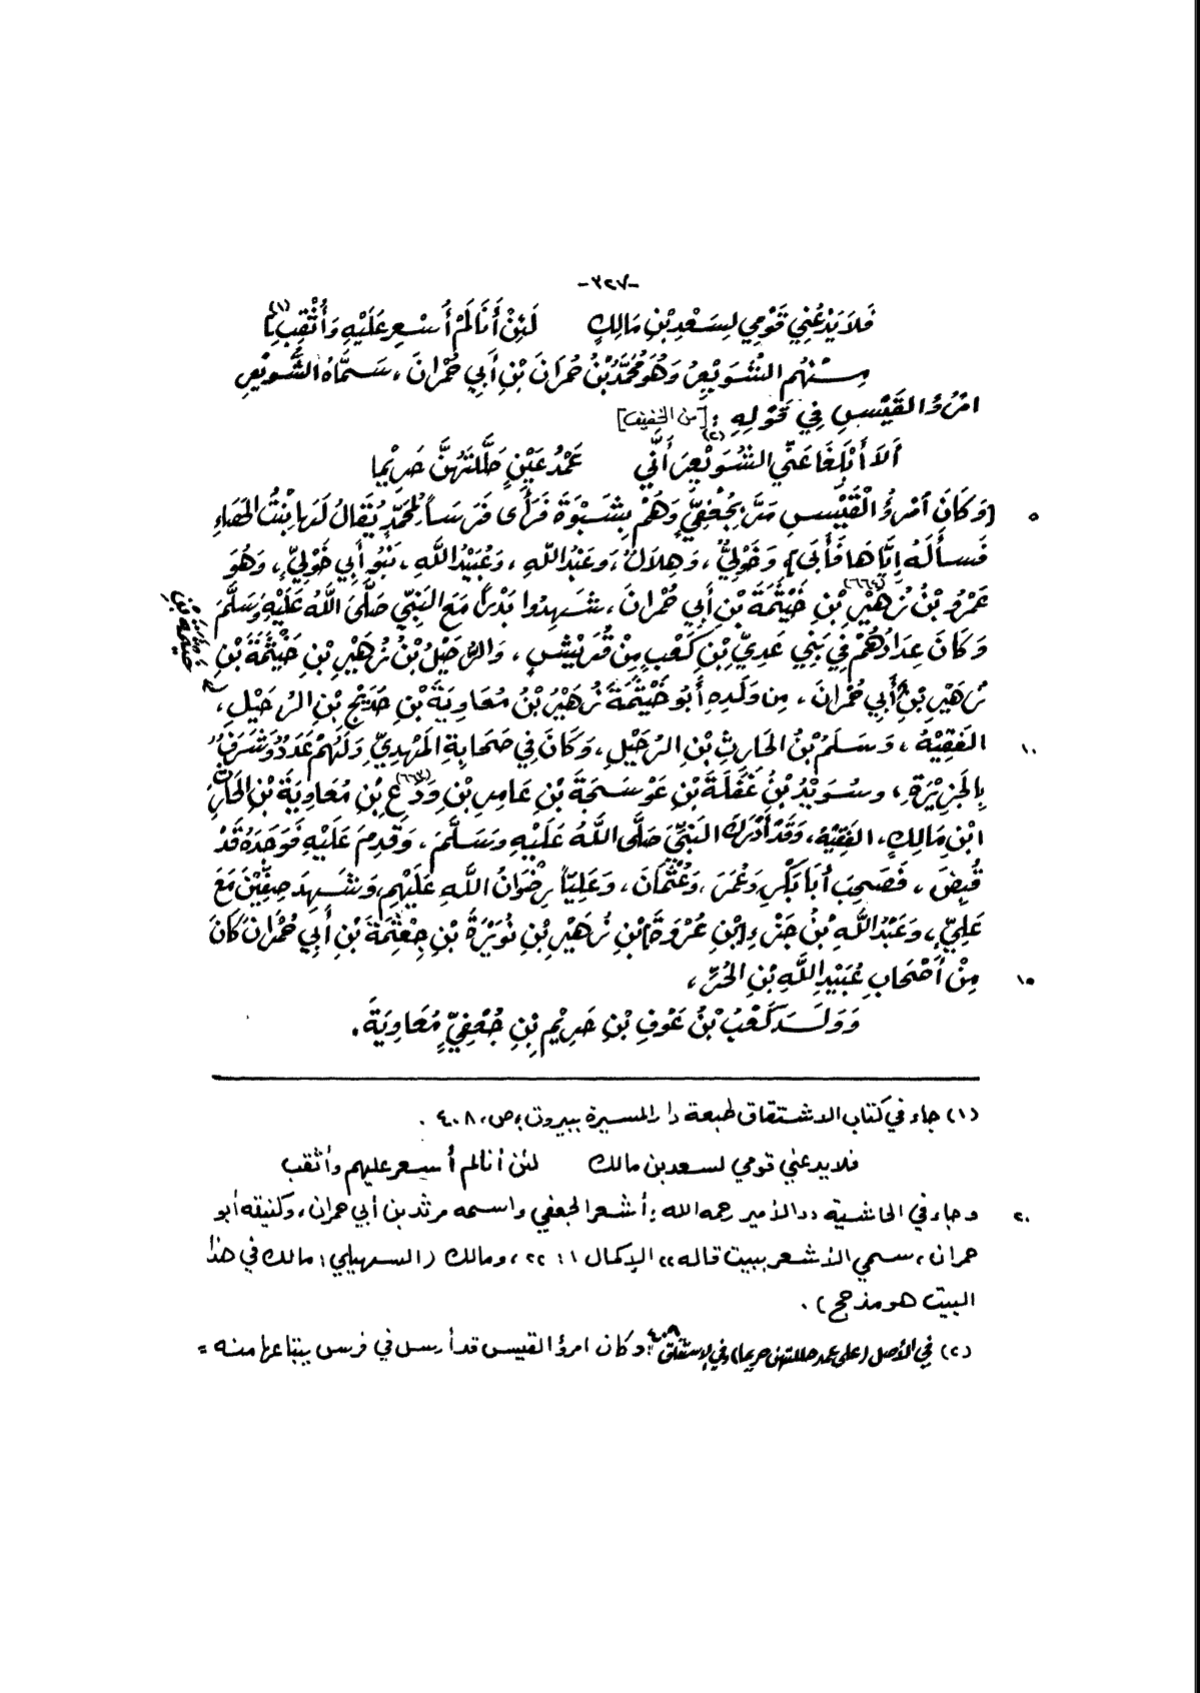 -٣٢٧-
فَلاَ يَدْعُنِي قَوْمِي لِسَعْدِ بْنِ مَالِكٍ لَئِنْ أَنَا لَمْ أُسْعِرْ عَلَيْهِ وَأُثْقِبِ (١)
مِنْهُم الشُّوَيْعِرُ وَهُوَ مُحَمَّدُ بْنُ حُمْرَانَ بْنِ أَبِي حُمْرَانَ، سَمَّاهُ الشُّوَيْعِرِ
امْرُؤُ القَيْسِ فِي قَوْلِهِ: [من الخفيف]
أَلاَ أَبْلِغَا عَنِّي الشُّوَيْعِرَ أَنِّي (٢) عَمْدُ عَيْنٍ حَلَّلْتُهُنَّ حَرِيْمَا
٥ [وَكَانَ امْرُؤُ الْقَيْسِ مَرَّ بِجُعْفِيٍّ وَهُمْ بِشَبْوَةَ فَرَأَى فَرَسَاً لِمُحَمَّدٍ يُقَالُ لَهَا بِنْتُ الحَصَّاءِ
فَسأَلَهُ إِيَّاهَا فَأَبَى] وَخَوْلِيُّ، وَهِلاَلُ، وَعَبْدُ اللَّهِ، وَعُبَيْدُ اللَّهِ، بَنُو أَبِي خَوْلِيٍّ، وَهُوَ
عَمْرُو بْنُ زُهَيْرِ (٦٦٤) بْنِ خَيْثَمَةَ بْنِ أَبِي حُمْرَانَ، شَهِدُوا بَدْرَاً مَعَ النَبِيِّ صَلَّى اللَّهُ عَلَيْهِ وَسَلَّمَ
وَكَانَ عِدَادُهُمْ فِي بَنِي عَدِيِّ بْنِ كَعْبٍ مِنْ قُرَيْشٍ، وَالرُّحَيْلُ بْنُ زُهَيْرِ بْنِ خَيْثَمَةَ بْنِ
خيثمة بن
زُهَيْرِ بْنِ أَبِي حُمْرَانَ، مِن وَلَدِهِ أَبُو خَيْثَمَةَ زُهَيْرُ بْنُ مُعَاوِيَةَ بْنِ حَدِيْجِ بْنِ الرُحَيْلِ،
١٠ الفَقِيْهُ، وَسَلَمُ بْنُ الحَارِثِ بْنِ الرُحَيْلِ، وَكَانَ فِي صَحَابَةِ المَهْدِيِّ وَلَهُمْ عَدَدٌ وَشَرَفٌ
بِالجَزِيْرَةِ، وسُوَيْدُ بْنُ غَفَلَةَ بْنِ عَوْسَجَةَ بْنِ عَامِرِ بْنِ وَدَعِ (٦٦٣) بْنِ مُعَاوِيَةَ بْنِ الحَارِثِ
ابْنِ مَالِكٍ، الفَقِيْهُ، وَقَدْ أَدْرَكَ النَبِيَّ صَلَّى اللَّهُ عَلَيْهِ وَسَلَّمَ، وَقَدِمَ عَلَيْهِ فَوَجَدَهُ قَدْ
قُبِضَ، فَصَحِبَ أَبَا بَكْرٍ وَعُمَرَ، وَعُثْمَانَ، وَعَلِيَّاً رِضْوَانُ اللَّهِ عَلَيْهِم، وَشَهِدَ صِفِّيْنَ مَعَ
عَلِيٍّ، وَعَبْدُ اللَّهِ بْنُ جَزْءِ ابْنِ عَمْرو بْنِ زُهَيْرِ بْنِ نُوَيْرَةَ بْنِ جِعْثِمَةَ بْنِ أَبِي حُمْرَانَ كَانَ
١٥ مِنْ أَصْحَابِ عُبَيْدِ اللَّهِ بْنِ الحُرِّ،
وَوَلَدَ كَعْبُ بْنُ عَوْفِ بْنِ حَرِيْمِ بْنِ جُعْفِيٍّ مُعَاوِيَةَ.
(١) جاء في كتاب الاشتقاق طبعة دار المسيرة ببيروت، ص، ٤٠٨.
فلا يدعني قومي لسعد بن مالك لئن أنا لم أسعر عليهم وأثقب
٢٠ وجاء في الحاشية «الأمير رحمه الله: أشعر الجعفي واسمه مرثد بن أبي حمران، وكنيته أبو
حمران، سمي الأشعر ببيت قاله» الإكمال ١: ٢٢، ومالك (السهيلي: مالك في هذا
البيت هو مذحج).
(٢) في الأصل (على عمد حللتهن حريما) وفي الإشتقاق ٤٠٨: وكان امرؤ القيس قد أرسل في فرس يبتاعها منه =